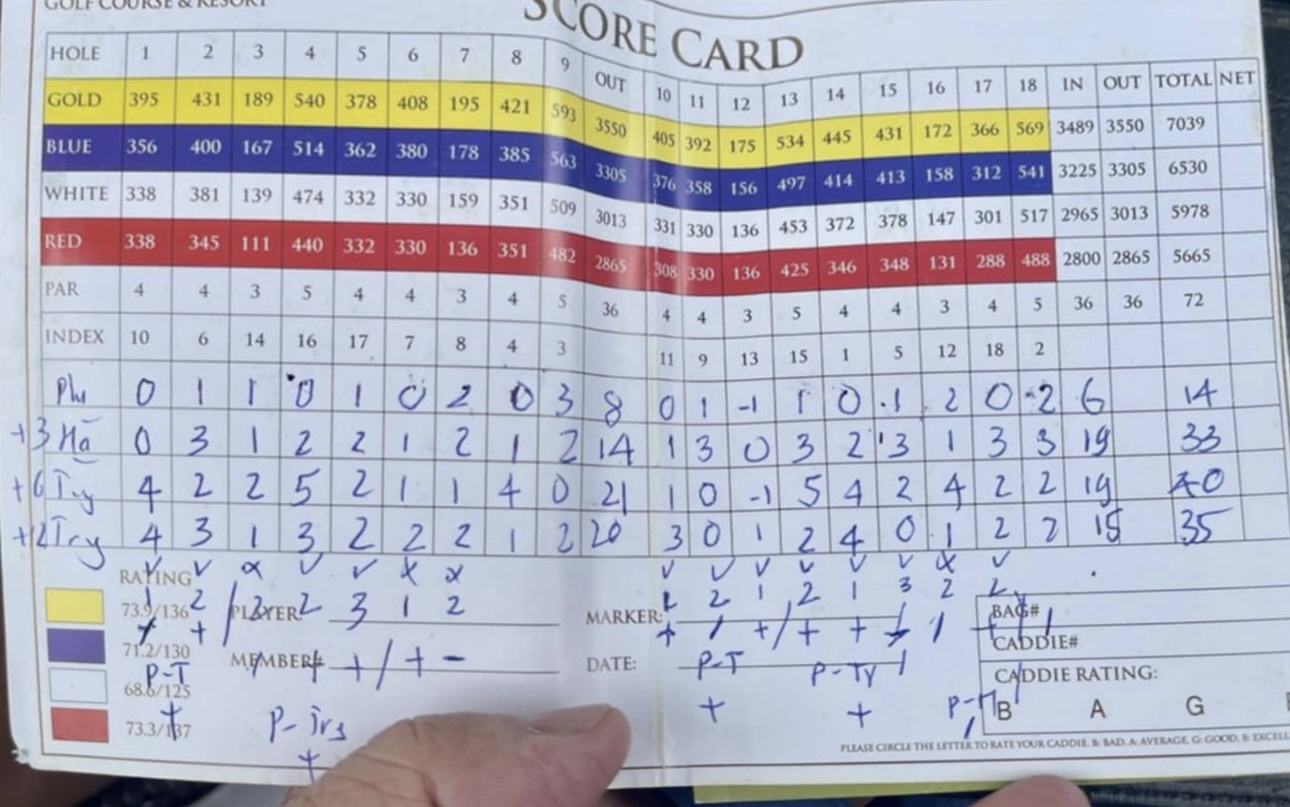 GOLF COURSE & RESORT
SCORE CARD
HOLE 1 2 3 4 5 6 7 8 9 OUT 10 11 12 13 14 15 16 17 18 IN OUT TOTAL NET
GOLD 395 431 189 540 378 408 195 421 593 3550 405 392 175 534 445 431 172 366 569 3489 3550 7039
BLUE 356 400 167 514 362 380 178 385 563 3305 376 358 156 497 414 413 158 312 541 3225 3305 6530
WHITE 338 381 139 474 332 330 159 351 509 3013 331 330 136 453 372 378 147 301 517 2965 3013 5978
RED 338 345 111 440 332 330 136 351 482 2865 308 330 136 425 346 348 131 288 488 2800 2865 5665
PAR 4 4 3 5 4 4 3 4 5 36 4 4 3 5 4 4 3 4 5 36 36 72
INDEX 10 6 14 16 17 7 8 4 3 11 9 13 15 1 5 12 18 2
0 1 1 0 1 0 2 0 3 8 0 1 -1 1 0 1 2 0 -2 6 14
+3 Hà 0 3 1 2 2 1 2 1 2 14 1 3 0 3 2 3 1 3 3 19 33
+6 4 2 2 5 2 1 1 4 0 21 1 0 -1 5 4 2 4 2 2 19 40
4 3 1 3 2 2 2 1 2 20 3 0 1 2 4 0 1 2 2 15 35
RATING
73.9/136 PLAYER: MARKER: BAG#
71.2/130 MEMBER# DATE: CADDIE#
P-T P-T P-Ty CADDIE RATING:
68.6/125 B A G
73.3/137
PLEASE CIRCLE THE LETTER TO RATE YOUR CADDIE, B: BAD, A: AVERAGE, G: GOOD, E: